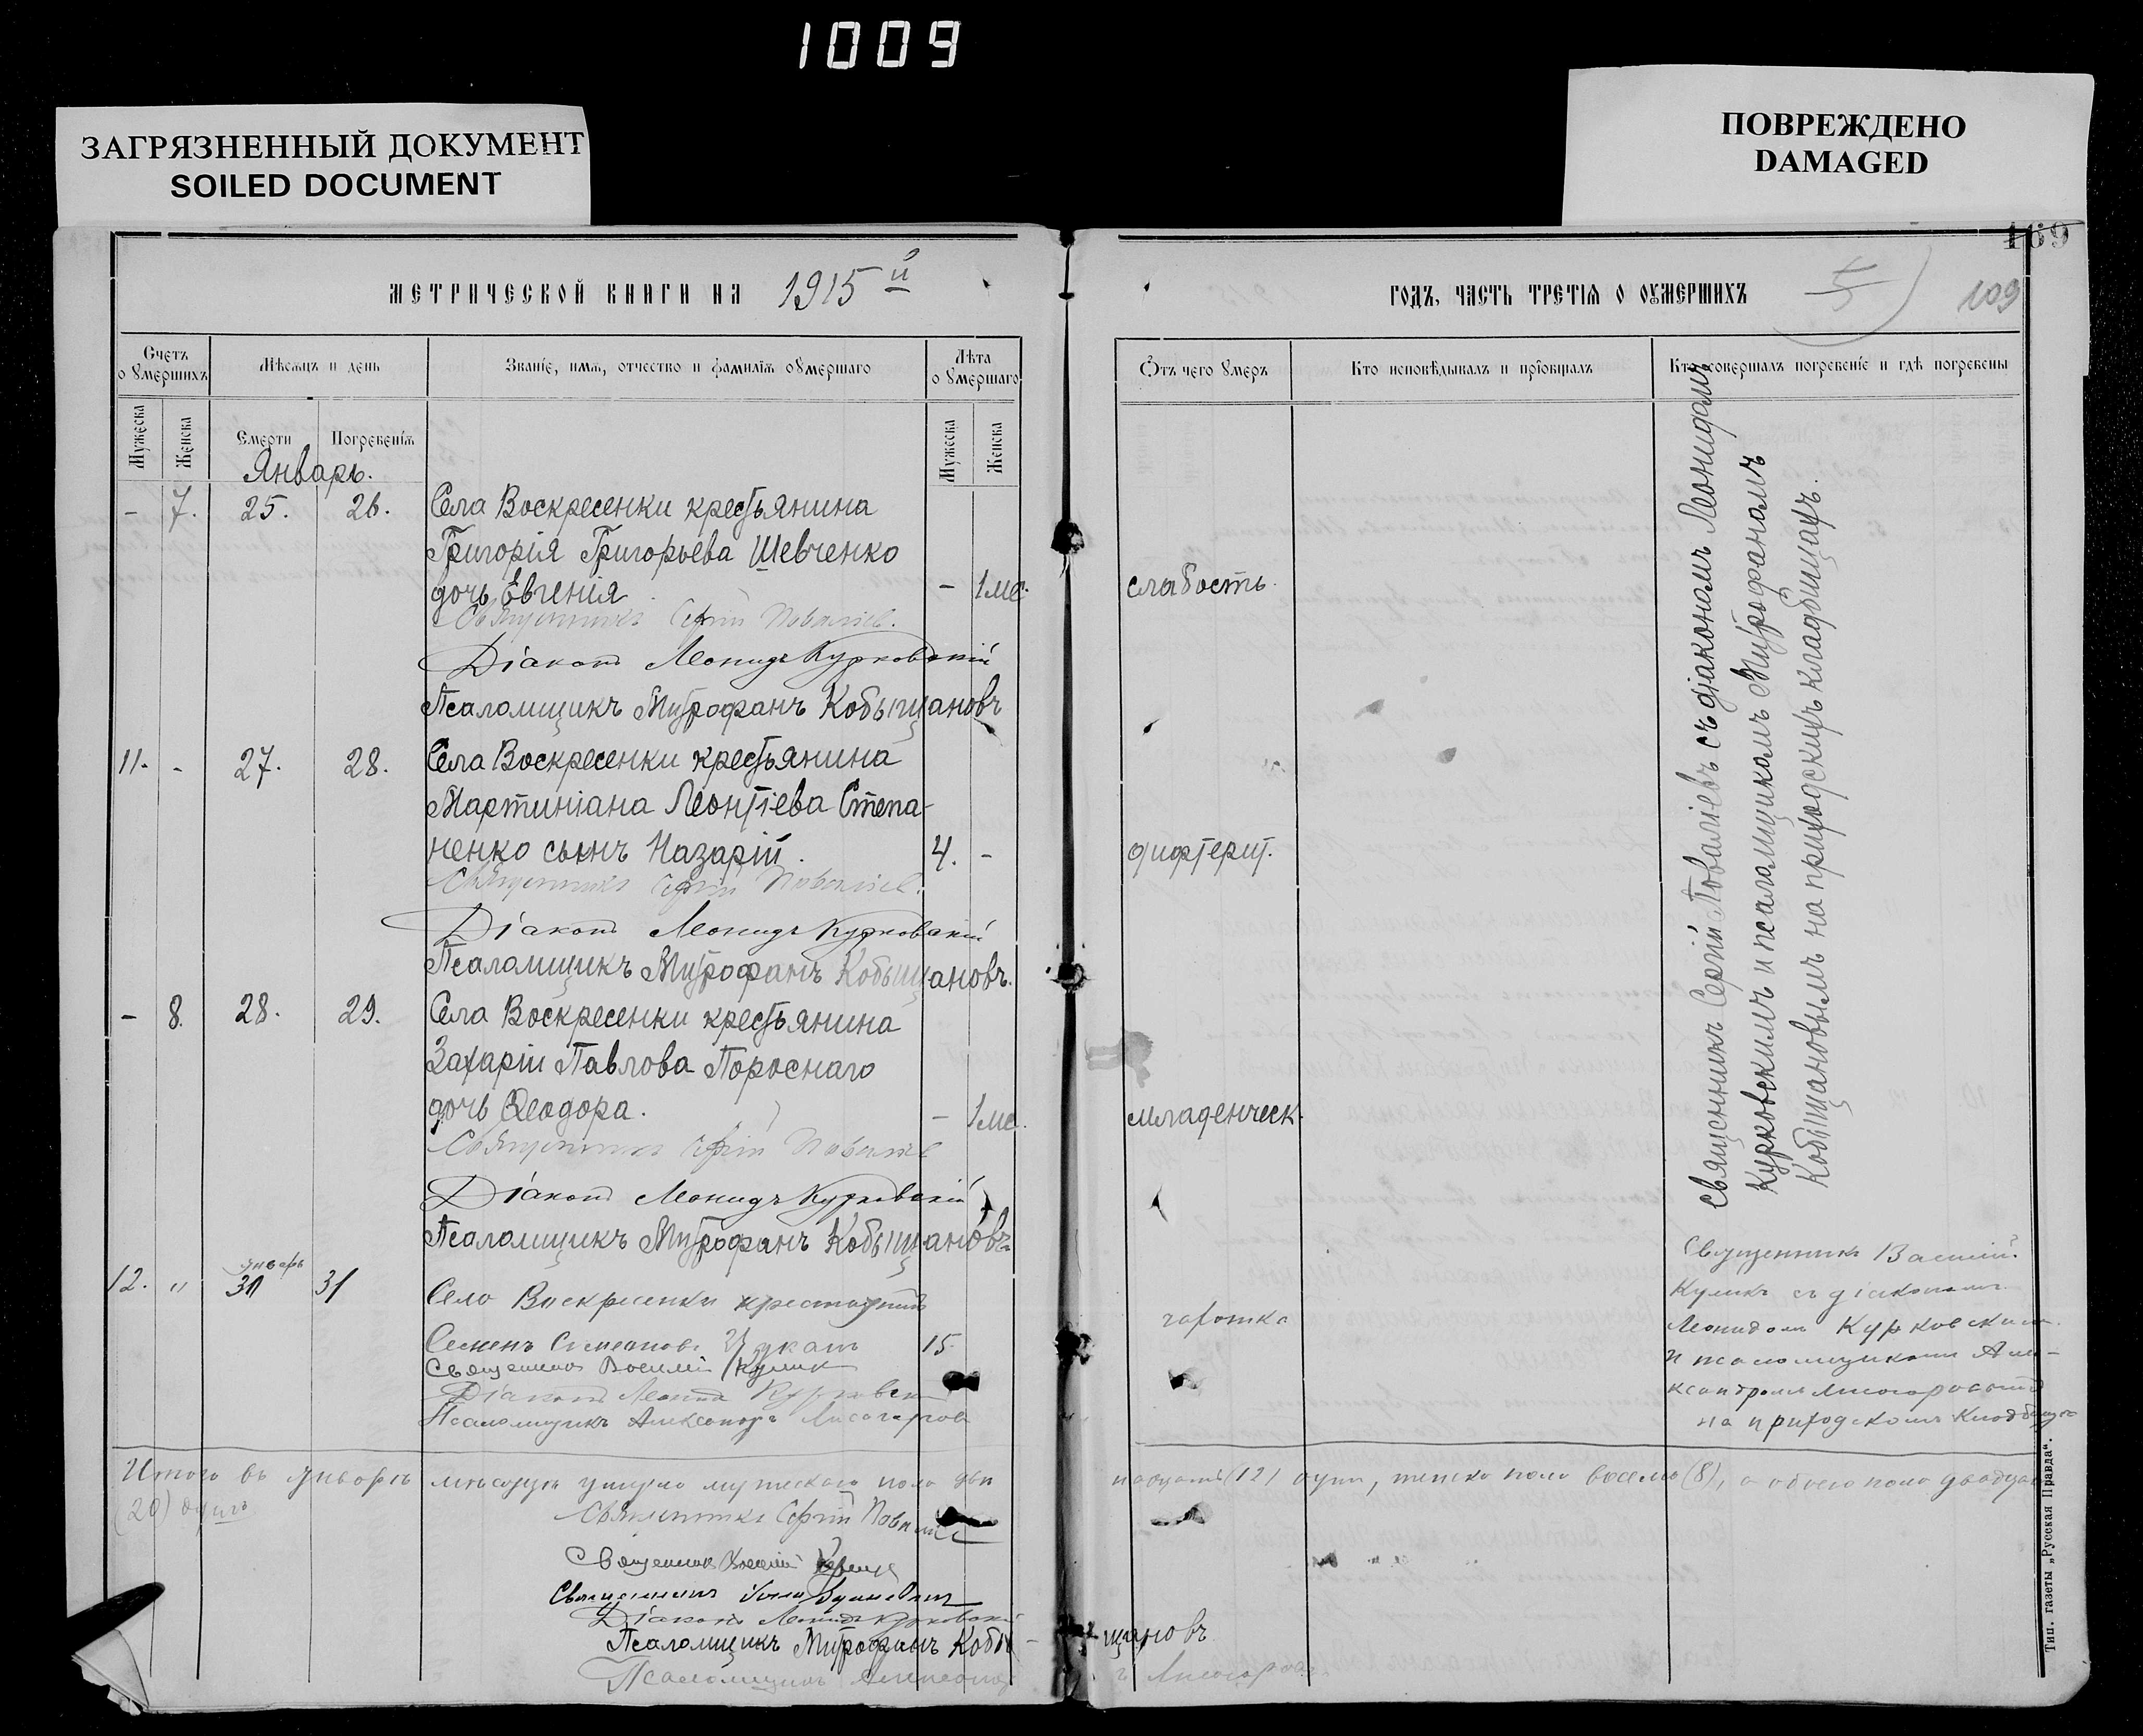 1009
ЗАГРЯЗНЕННЫЙ ДОКУМЕНТ
SOILED DOCUMENT
ПОВРЕЖДЕНО
DAMAGED
169
МЕТРИЧЕСКОЙ КНИГИ НА 1915й
ГОДЪ, ЧАСТЬ ТРЕТІЯ О ОУМЕРШИХЪ
109
Счетъ о умершихъ
Мѣсяцъ и день
Званіе, имя, отчество и фамилія оумершаго
Лѣта о умершаго
Отъ чего умеръ
Кто исповѣдывалъ и пріобщалъ
Кто совершалъ погребеніе и гдѣ погребены
Мужеска
Женска
Смерти
Погребенія
Мужеска
Женска
Январь.
- 7. 25. 26. Села Воскресенки крестьянина
Григорія Григорьева Шевченко
дочь Евгенія - 1 ме. слабость.
Священникъ Сергій Поваліев.
Діаконъ Леонидъ Курковскій
Псаломщикъ Митрофанъ Кобыщановъ
11. - 27. 28. Села Воскресенки крестьянина
Мартиніана Леонтіева Степа-
ненко сынъ Назарій. 4. - дифтерит.
Священникъ Сергій Поваліев.
Діаконъ Леонидъ Курковскій
Псаломщикъ Митрофанъ Кобыщановъ.
- 8. 28. 29. Села Воскресенки крестьянина
Захаріи Павлова Пороснаго
дочь Ѳеодора. - 1 ме. младенческ.
Священникъ Сергій Поваліев
Діаконъ Леонидъ Курковскій
Псаломщикъ Митрофанъ Кобыщановъ
Священникъ Сергій Поваліевъ съ діакономъ Леонидомъ
Курковскимъ и псаломщикомъ Митрофаномъ
Кобыщановымъ на приходскихъ кладбищахъ.
январь
12. " 31 31 Село Воскресенки
Семенъ Симеоновъ 15. чахотка
Священник Василій Кулик
Діаконъ Леонид Курковскій
Псаломщикъ Александръ Лисогоров
Священникъ Василій
Куликъ съ діакономъ
Леонидомъ Курковским
и псаломщикомъ Але-
ксандромъ
на приходскомъ кладбище
Итого въ январѣ мѣсяцѣ умерло мужескаго пола две
надцать (12) душъ, женска пола восемь (8), а обоего пола двадцать
(20) душъ
Священникъ Сергій Поваліев
Священник Василій Кулик
Священникъ
Діаконъ Леонидъ Курковскій
Псаломщикъ Митрофанъ Кобы-
щановъ
Псаломщикъ Александр
ъ Лисогоров
Тип. газеты „Русская Правда“.